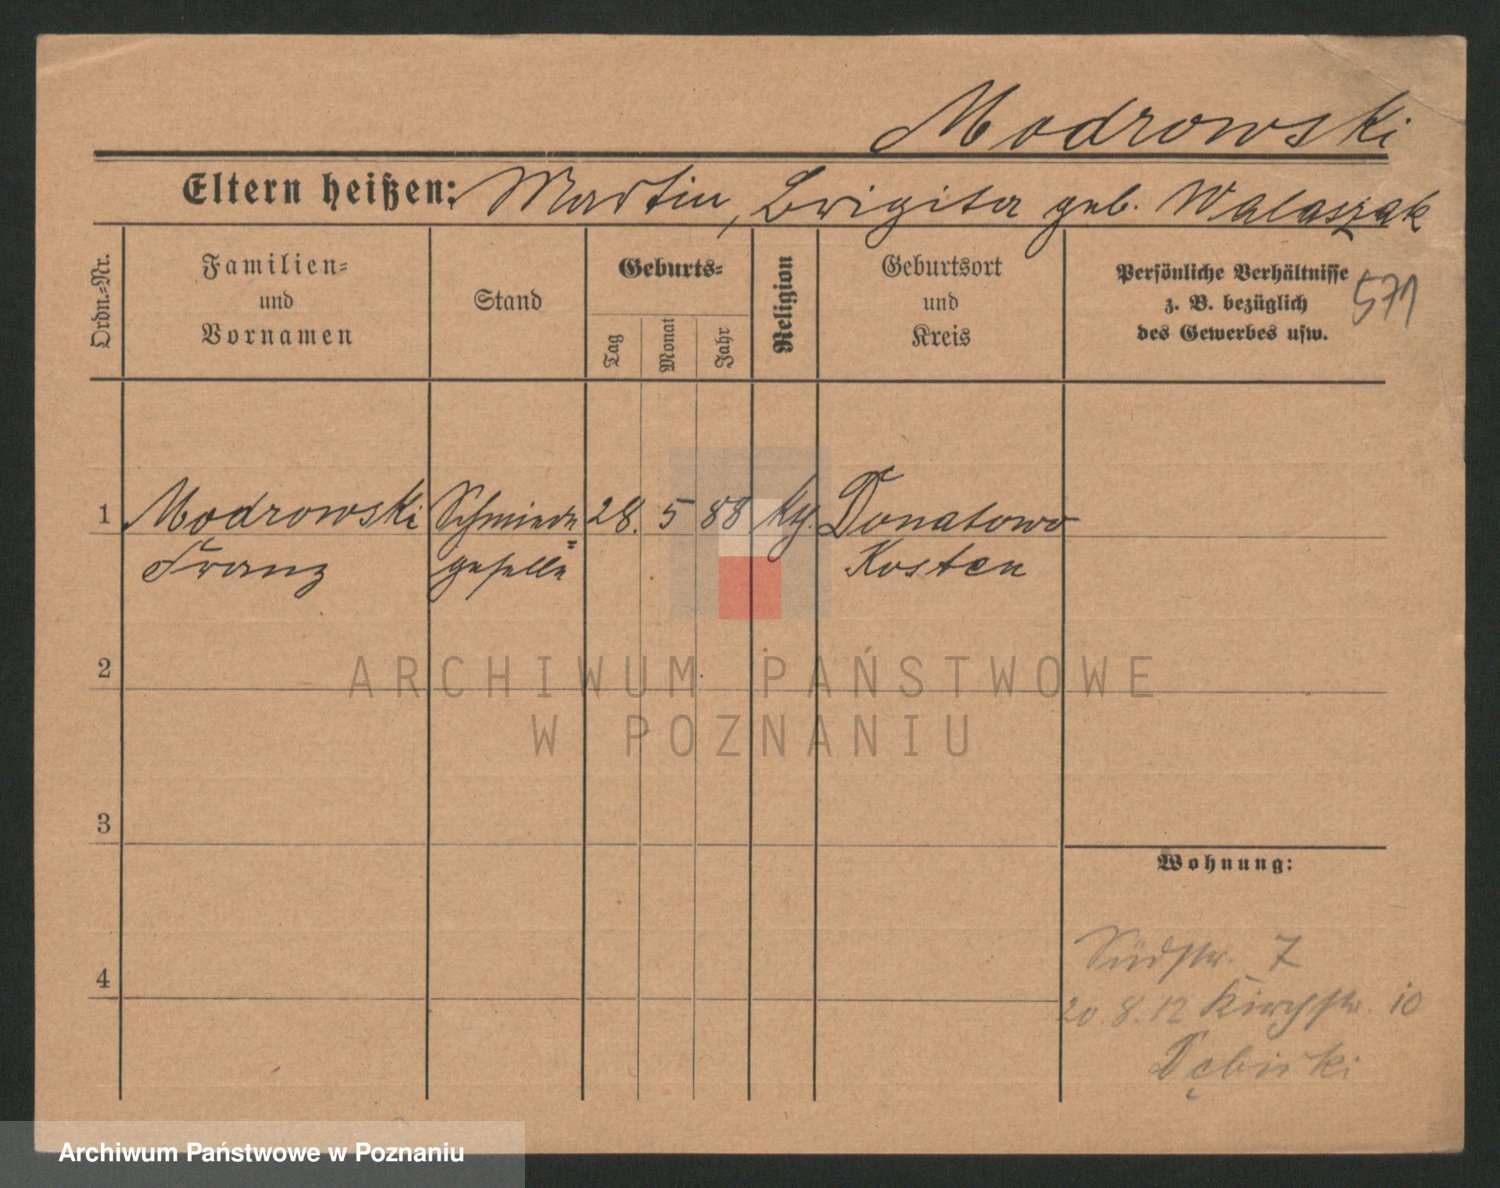 Modrowski
Eltern heißen: Martin, Brigita geb. Walaszak
Ordn.-Nr.
Familien-
und
Vornamen
Stand
Geburts-
Tag
Monat
Jahr
Religion
Geburtsort
und
Kreis
Persönliche Verhältnisse
z. B. bezüglich
des Gewerbes usw.
571
1 Modrowski Schmiede 28. 5 88 kth. Donatowo
Franz geselle Kosten
2
3
4
Wohnung:
Südstr. 7
20.8.12 Kirchstr. 10
ARCHIWUM PAŃSTWOWE
W POZNANIU
Archiwum Państwowe w Poznaniu